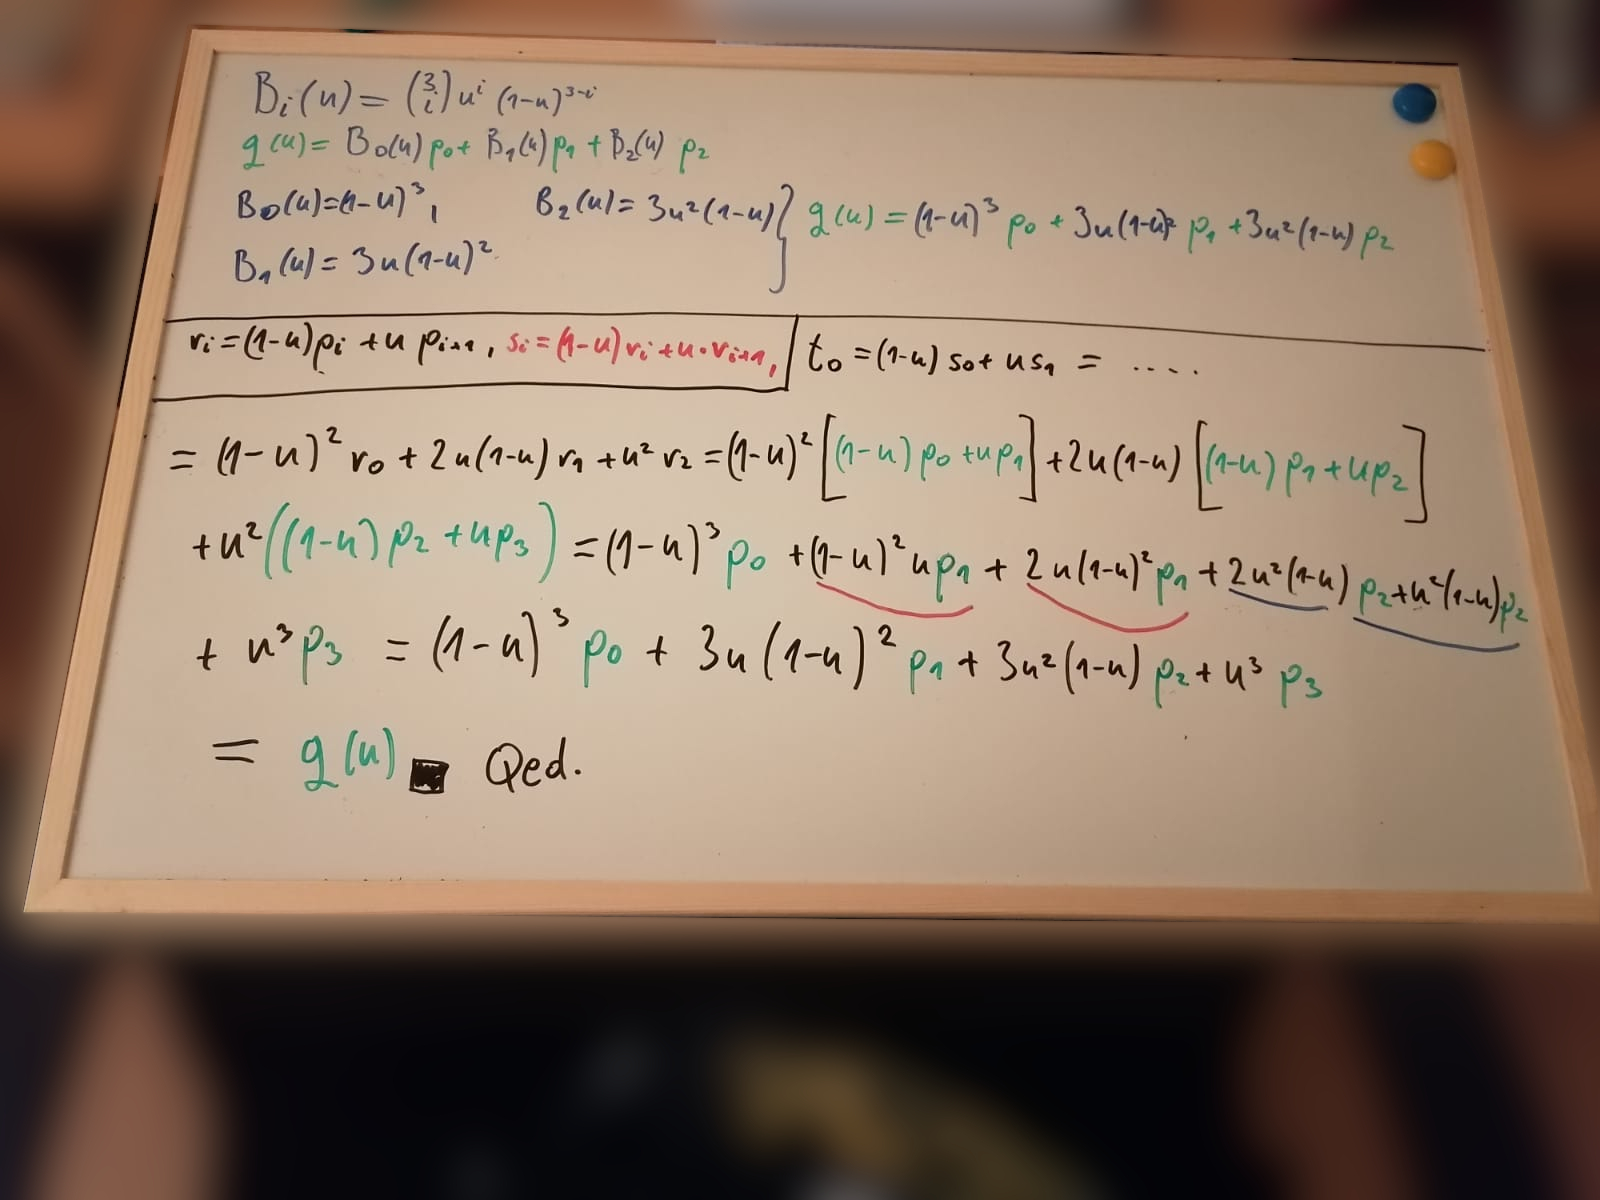 Bᵢ(u) = (3 i) uⁱ (1-u)³⁻ⁱ
g(u) = B₀(u) p₀ + B₁(u) p₁ + B₂(u) p₂
B₀(u) = (1-u)³, B₂(u) = 3u²(1-u) } g(u) = (1-u)³ p₀ + 3u(1-u)² p₁ + 3u²(1-u) p₂
B₁(u) = 3u(1-u)²
rᵢ = (1-u)pᵢ + u pᵢ₊₁, sᵢ = (1-u) rᵢ + u·rᵢ₊₁, t₀ = (1-u) s₀ + u s₁ = ....
= (1-u)² r₀ + 2u(1-u) r₁ + u² r₂ = (1-u)² [(1-u) p₀ + u p₁] + 2u(1-u) [(1-u) p₁ + u p₂]
+ u² ((1-u) p₂ + u p₃) = (1-u)³ p₀ + (1-u)² u p₁ + 2u(1-u)² p₁ + 2u²(1-u) p₂ + u²(1-u) p₂
+ u³ p₃ = (1-u)³ p₀ + 3u(1-u)² p₁ + 3u²(1-u) p₂ + u³ p₃
= g(u) ■ Qed.